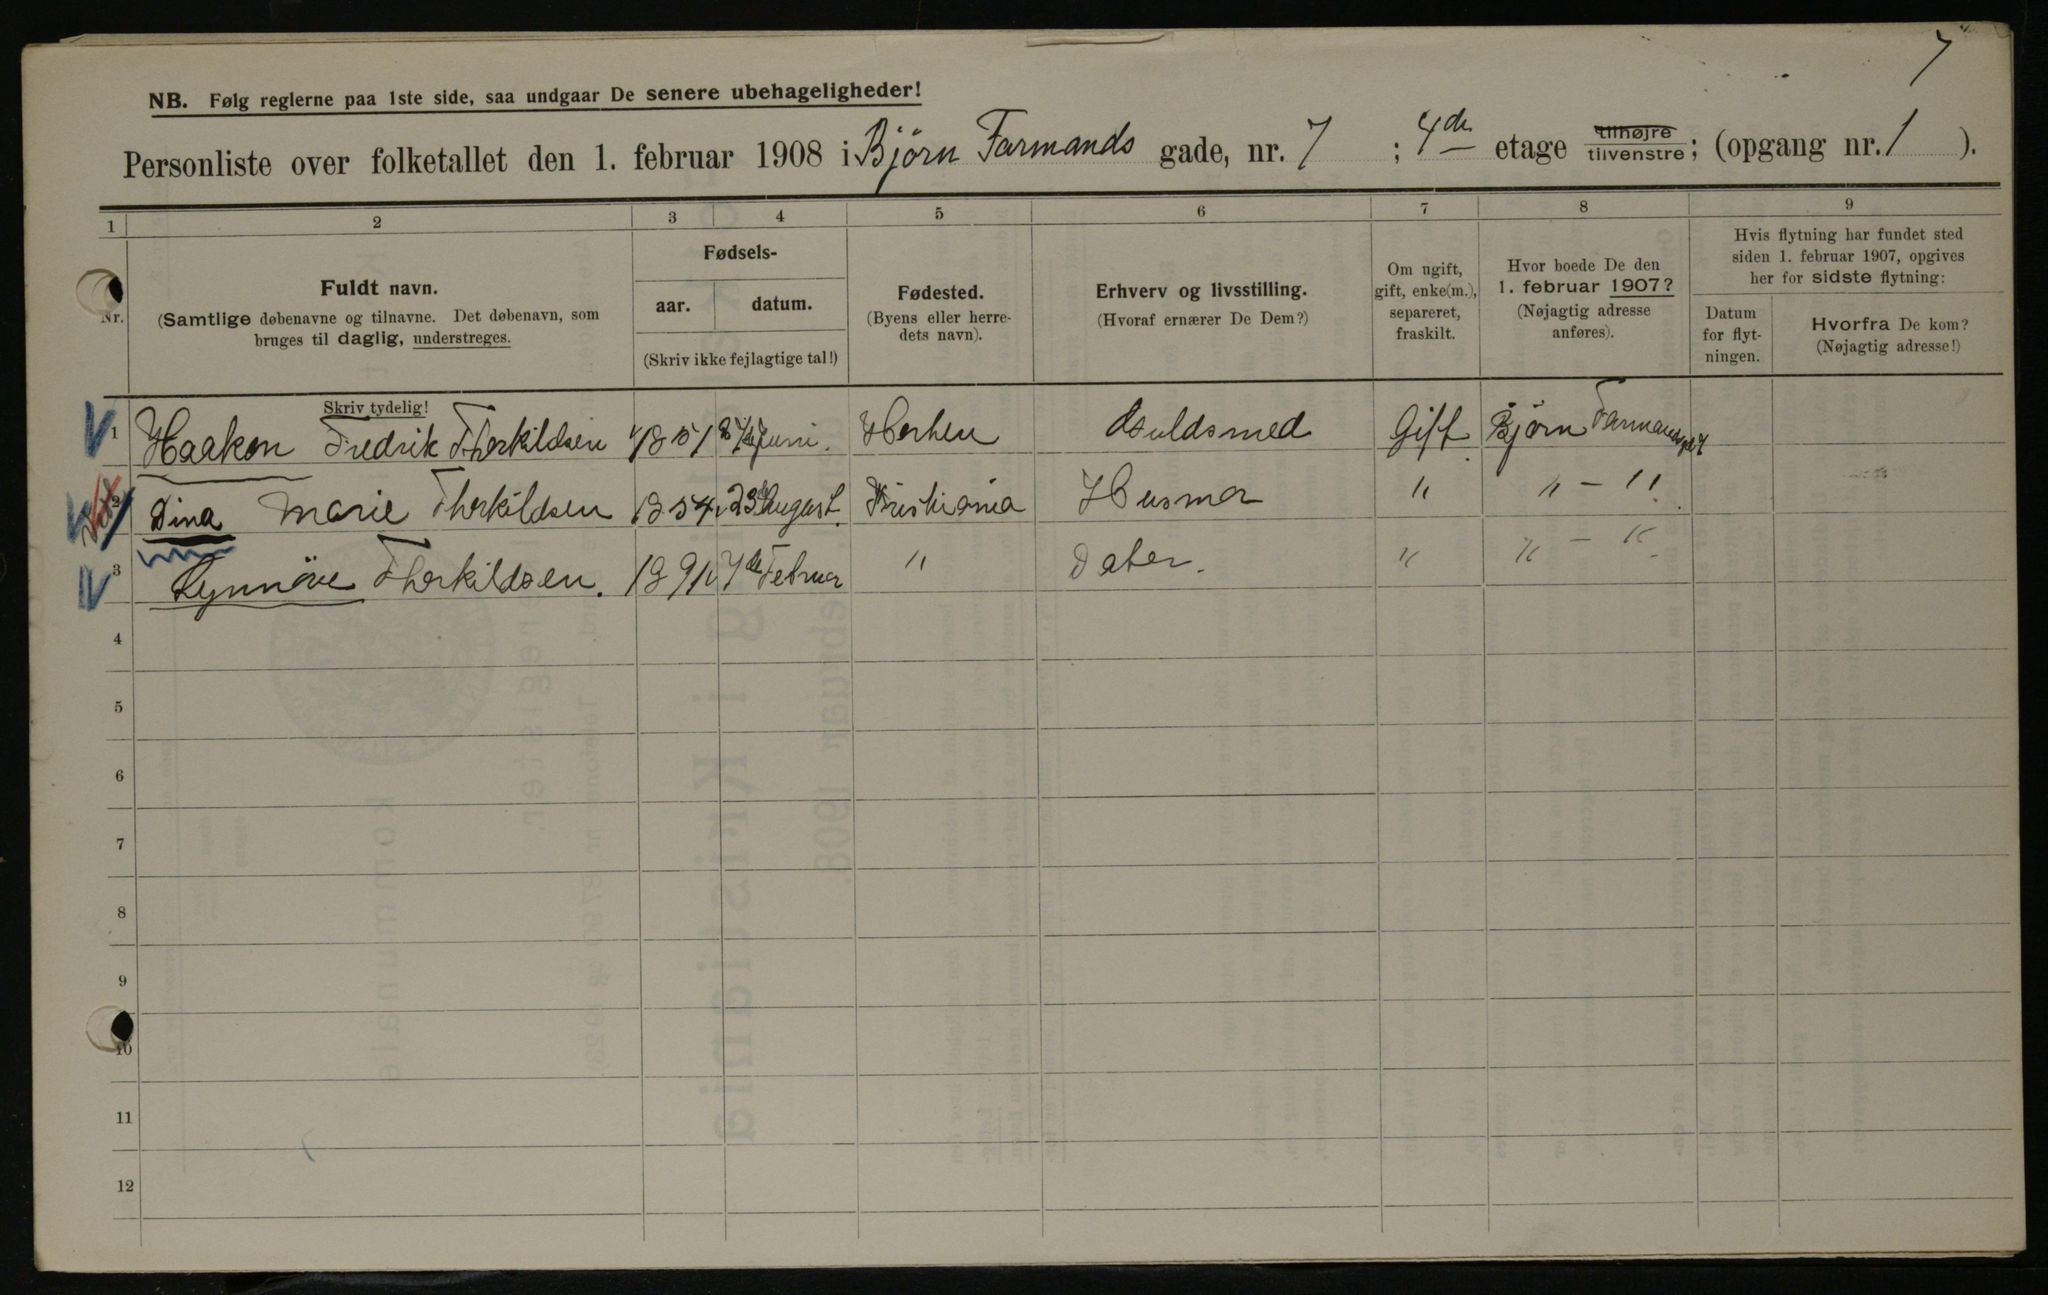 7
NB. Følg reglerne paa 1ste side, saa undgaar De senere ubehageligheder!
Personliste over folketallet den 1. februar 1908 i Bjørn Farmands gade, nr. 7 ; 4de etage tilhøjre tilvenstre; (opgang nr. 1 ).
1 2 3 4 5 6 7 8 9
Nr.
Fuldt navn.
(Samtlige døbenavne og tilnavne. Det døbenavn, som
bruges til daglig, understreges.
Skriv tydelig!
Fødsels-
aar. datum.
(Skriv ikke fejlagtige tal!)
Fødested.
(Byens eller herre-
dets navn).
Erhverv og livsstilling.
(Hvoraf ernærer De Dem?)
Om ugift,
gift, enke(m.),
separeret,
fraskilt.
Hvor boede De den
1. februar 1907?
(Nøjagtig adresse
anføres).
Hvis flytning har fundet sted
siden 1. februar 1907, opgives
her for sidste flytning:
Datum
for flyt-
ningen.
Hvorfra De kom?
(Nøjagtig adresse!)
1 Haakon Fredrik Therkildsen 1851 Juni. Horten Guldsmed Gift Bjørn Farmandsgd 7
2 Dina Marie Therkildsen 1854 23de August. Kristiania Husmor " " - "
3 Synnöve Therkildsen. 1891 7de Februar " Dater. " " - "
4
5
6
7
8
9
10
11
12